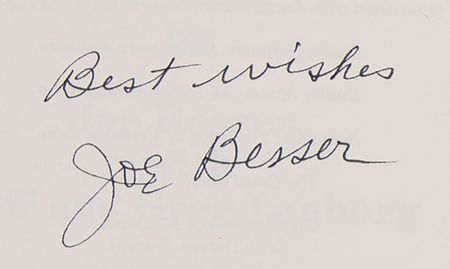 Best wishes
Joe Besser